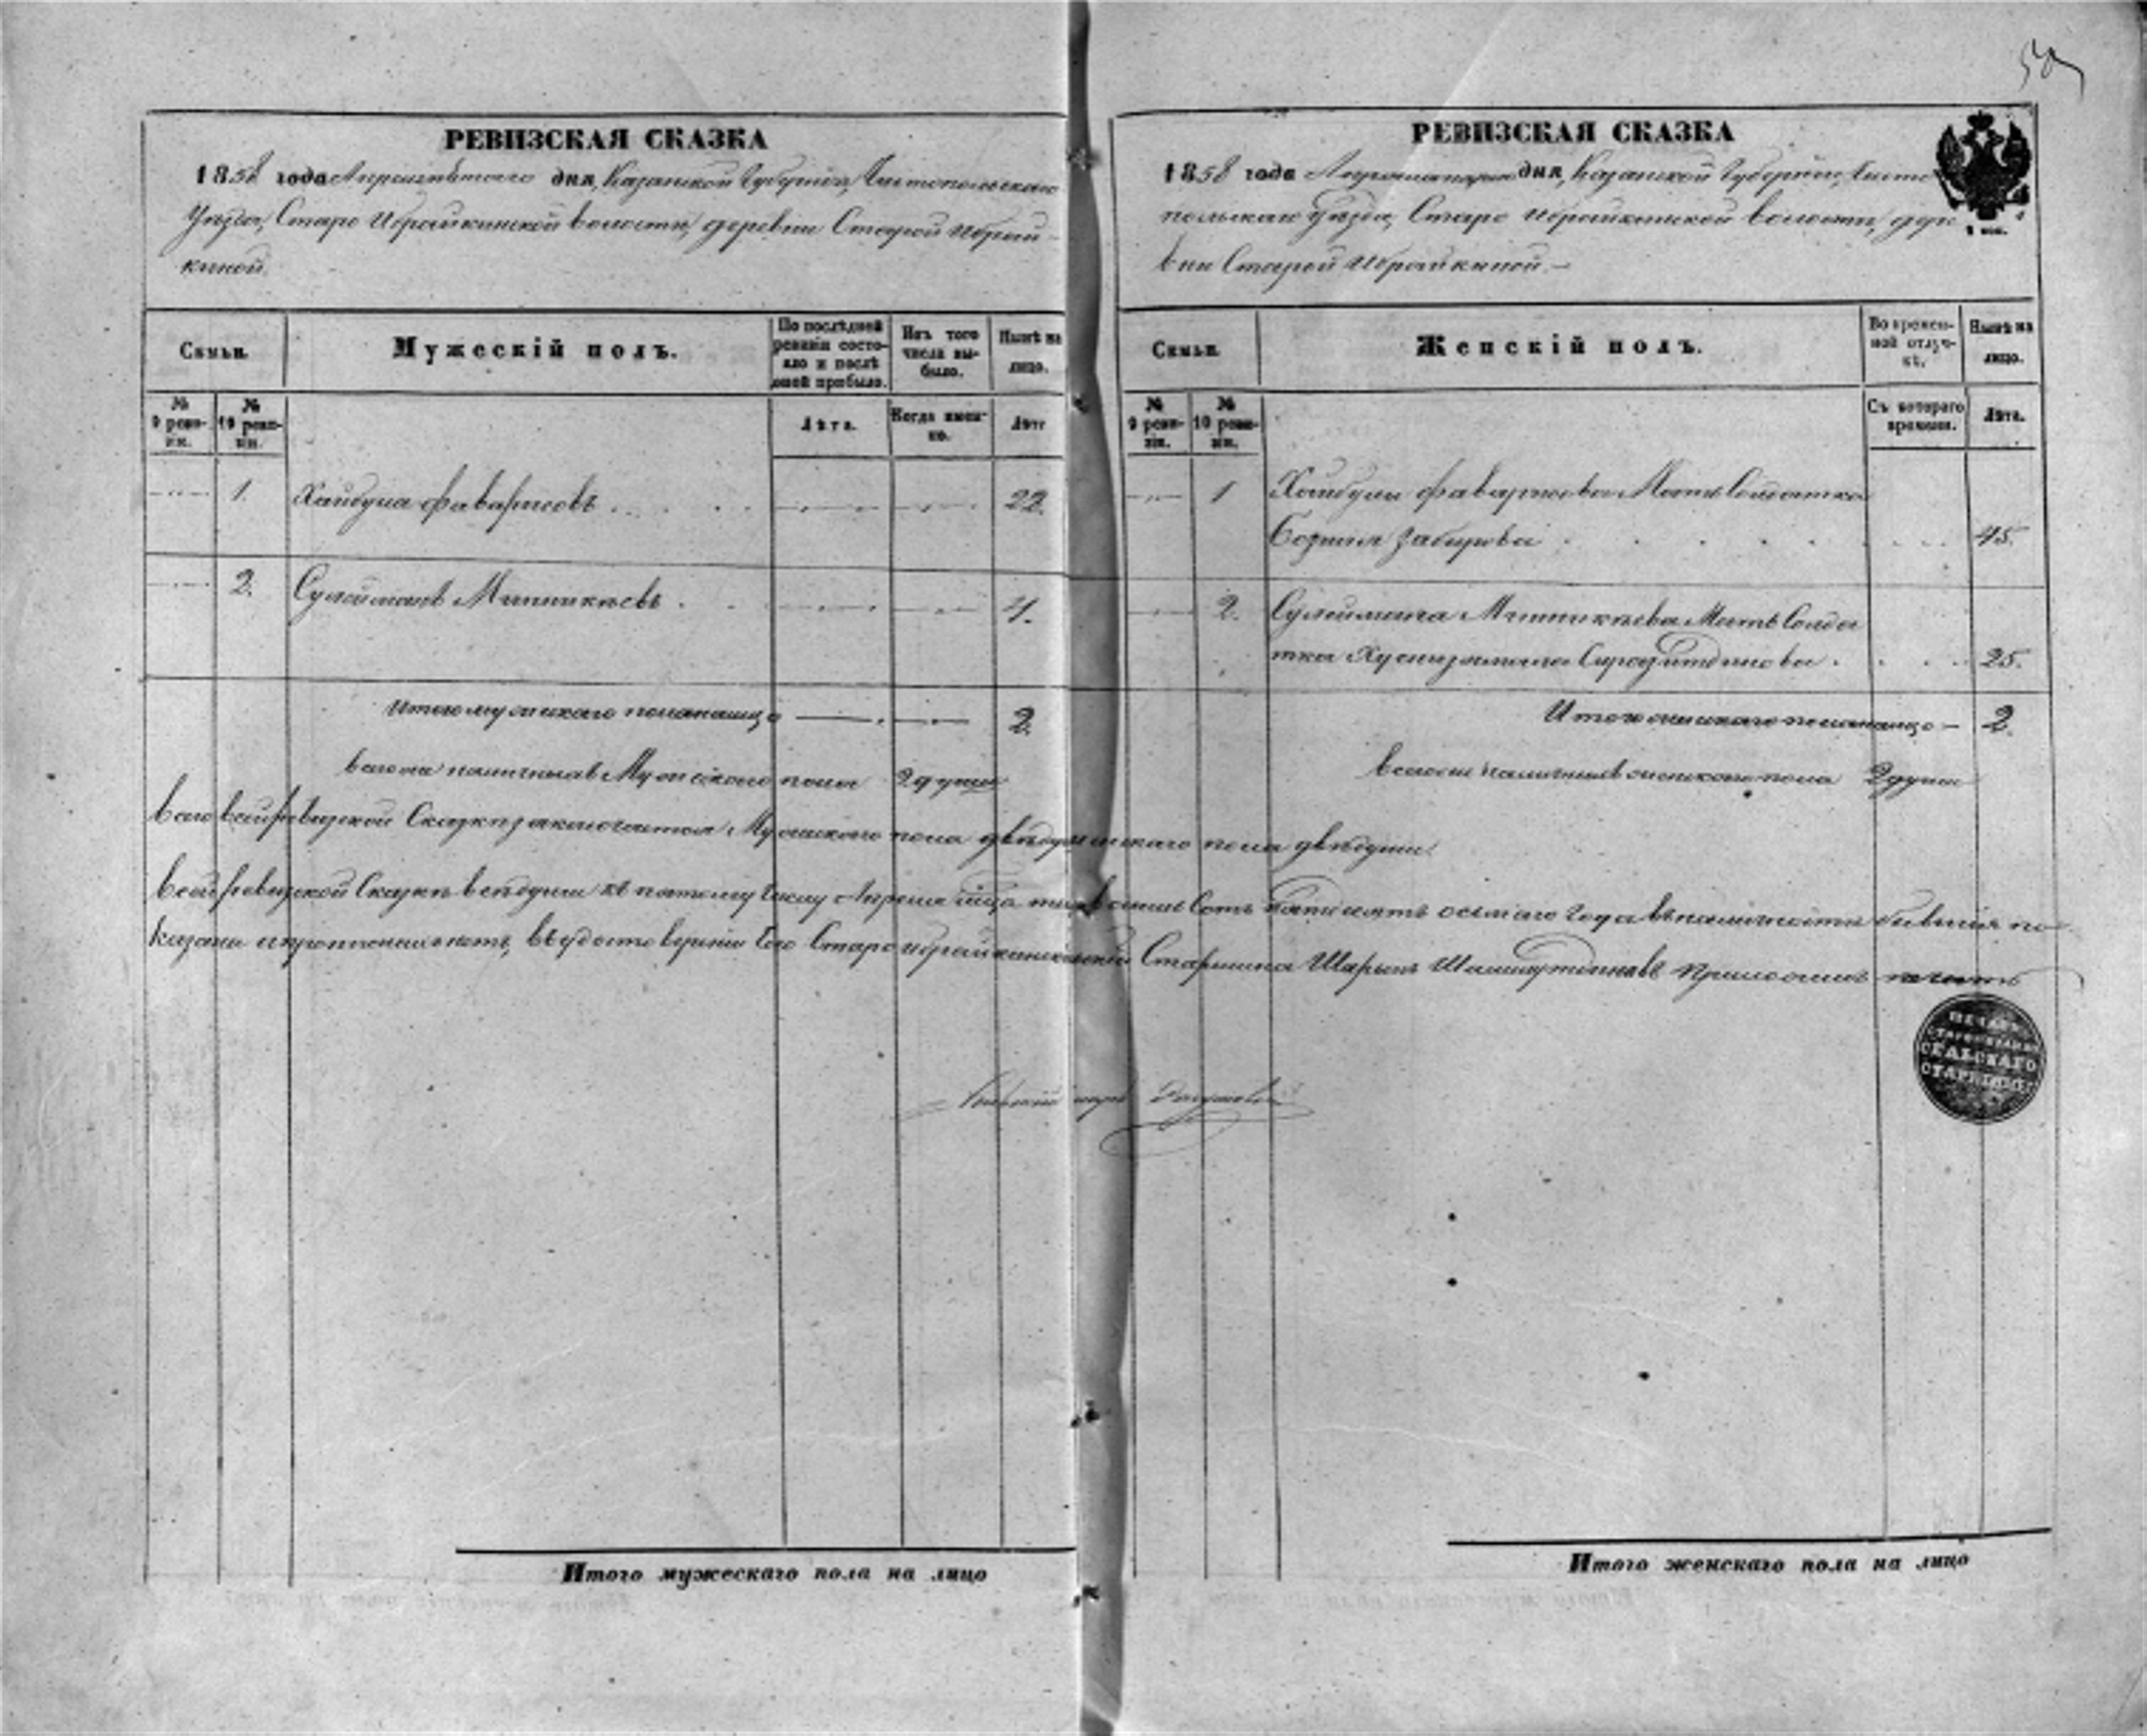 РЕВИЗСКАЯ СКАЗКА
1858 года Апреля пятого дня, Казанской Губернии, Чистопольскаго
Уезда, Старо Ибрайкинской волости, деревни Старой Ибрай-
киной.
Семьи.
Мужескій полъ.
По послѣдней ревизіи состояло и послѣ оной прибыло.
Изъ того числа выбыло.
Нынѣ на лицо.
№ 9 ревизіи.
№ 10 ревизіи.
Лѣта.
Когда именно.
Лѣта
1. Хайбула Фаварисовъ 22.
2. Сулейманъ Минникѣевъ 4.
Итого мужскаго пола на лицо 2.
Всего наличныхъ Мужескаго пола 2 души
РЕВИЗСКАЯ СКАЗКА
1858 года Апреля пятого дня, Казанской Губерніи, Чисто
польскаго Уѣзда, Старо Ибрайкинской волости, дере
вни Старой Ибрайкиной.—
1 коп.
Семьи.
Женскій полъ.
Во временной отлучкѣ.
Нынѣ на лицо.
№ 9 ревизіи.
№ 10 ревизіи.
Съ котораго времени.
Лѣта.
1 Хайбулы Фаварисова Мать Солдатка
Забирова 45.
2. Сулеймана Минникѣева Мать Солда
тка 25.
Итого женскаго пола на лицо — 2.
Всего наличныхъ женскаго пола 2 души
Всего в сей ревизской Сказкѣ заключается Мужскаго пола двѣ души женскаго пола двѣ души.
В сей ревизской Сказкѣ всѣ души къ пятому числу Апреля мѣсяца тысяча восемь Сотъ пятьдесятъ осьмаго Года въ наличности бывшія по
казаны и пропущенныхъ нетъ, въ удостовереніи Чего Старо Ибрайкинской Старшина Шарыпъ приложилъ печать
Сельскій
ПЕЧАТЬ
СЕЛЬСКАГО
СТАРШИНЫ
Итого мужескаго пола на лицо
Итого женскаго пола на лицо